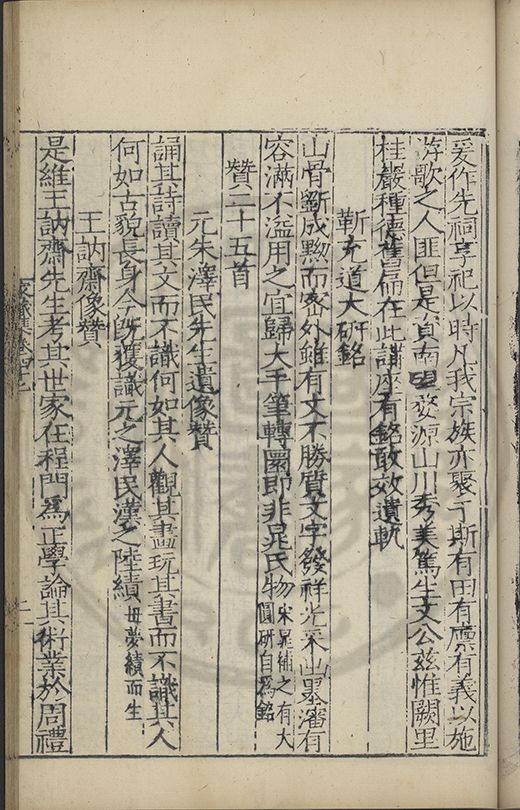 爰作先祠享祀以時凡我宗族亦聚于斯有田有廩有義以施
游歌之人匪但是資南望婺源山川秀美篤生文公茲惟闕里
桂巖種德舊扁在此講座有銘敢效遺軌
靳充道大硏銘
山骨斲成黝而密外雖有文不勝質文字發祥光采出墨瀋有
容滿不溢用之宜歸大手筆轉圜即非晁氏物宋晁補之有大
圓硏自爲銘
贊二十五首
元朱澤民先生遺像贊
誦其詩讀其文而不識何如其人觀其畫玩其書而不識其人
何如古貌長身今所獲識元之澤民漢之陸績母夢績而生
王訥齋像贊
是維王訥齋先生考其世家在程門爲正學論其術業於周禮